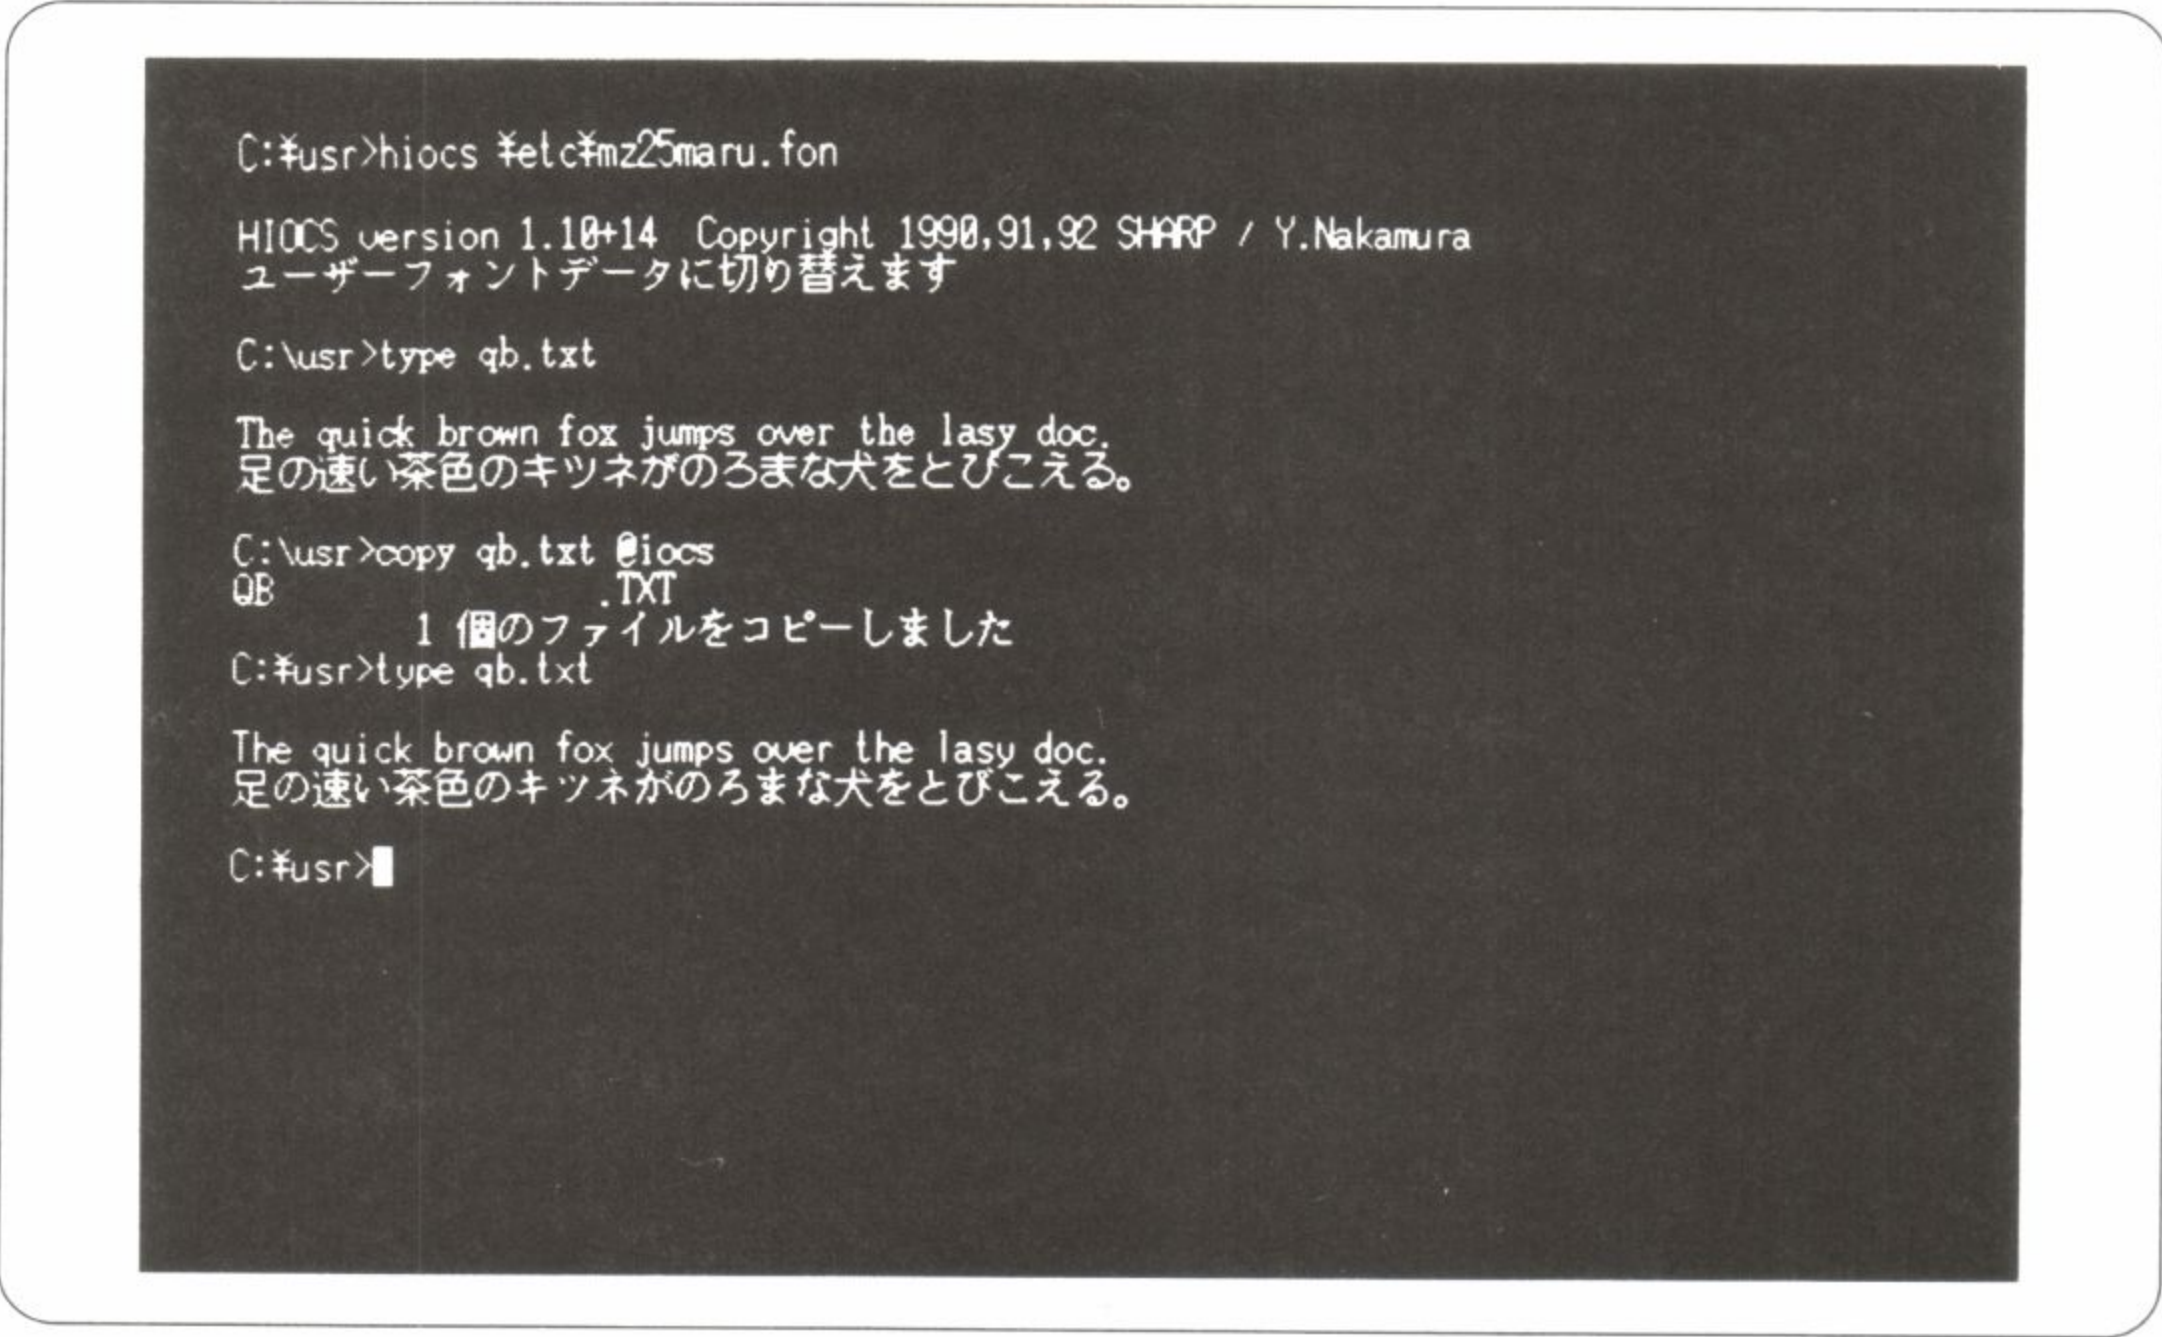 C:¥usr>hiocs ¥etc¥mz25maru.fon
HIOCS version 1.10+14  Copyright 1990,91,92 SHARP / Y.Nakamura
ユーザーフォントデータに切り替えます
C:\usr>type qb.txt
The quick brown fox jumps over the lasy doc.
足の速い茶色のキツネがのろまな犬をとびこえる。
C:\usr>copy qb.txt @iocs
QB                 .TXT
1 個のファイルをコピーしました
C:¥usr>type qb.txt
The quick brown fox jumps over the lasy doc.
足の速い茶色のキツネがのろまな犬をとびこえる。
C:¥usr>